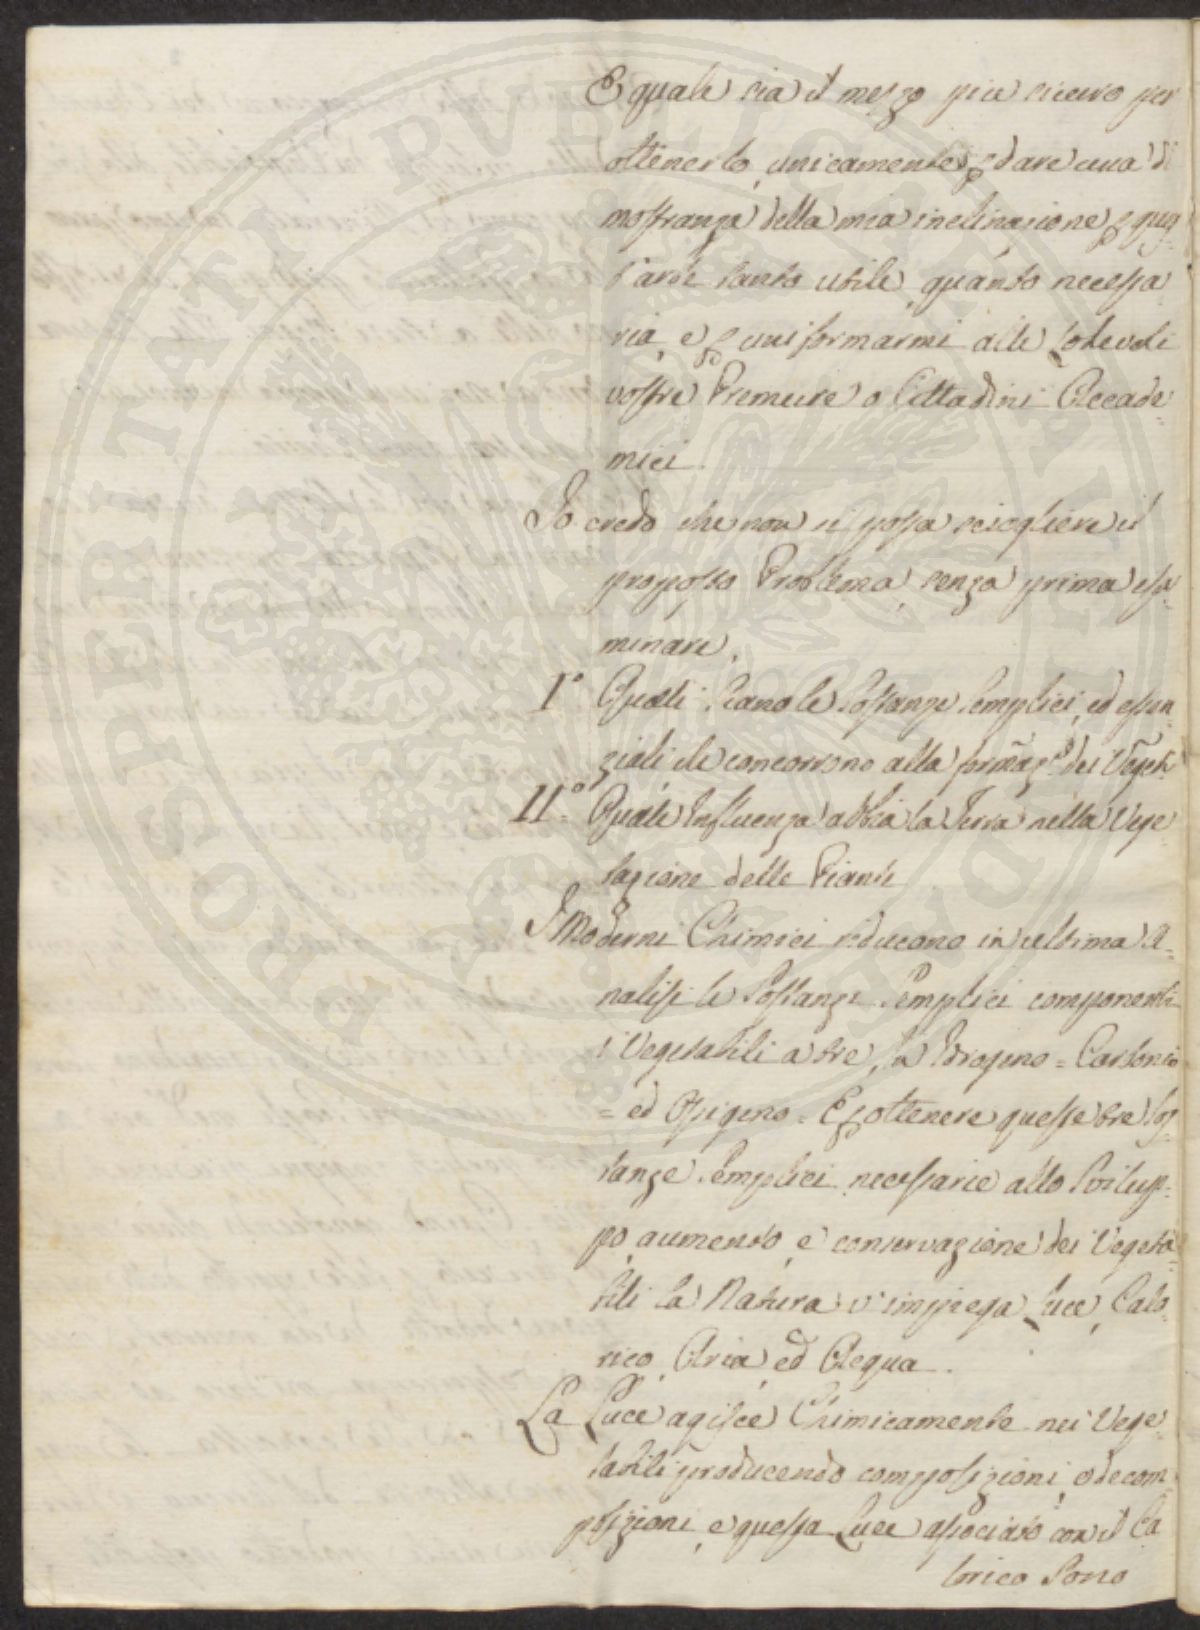 E quale sia il mezzo più sicuro per
ottenerlo, unicamente p dare una di
mostranza della mia inclinazione p ques
t'arte tanto utile, quanto necessa
ria, e p uniformarmi alle lodevoli
vostre Premure o Cittadini Accade=
mici.
Io credo che non si possa sciogliere il
proposto Problema, senza prima esa=
minare,
I° Quali siano le Sostanze semplici, ed essen=
ziali che concorrono alla formaz.e dei Veget.
II° Quale Influenza abbia la Terra nella Vege
tazione delle Piante
I Moderni Chimici riducono in ultima A=
nalisi le Sostanze semplici componenti
i Vegetabili a tre, Idrogeno = Carbonio
= ed Ossigeno. E p ottenere queste tre Sos=
tanze semplici necessarie allo Svilup=
po, aumento, e conservazione dei Vegeta=
bili la Natura v'impiega Luce, Calo=
rico, Aria, ed Acqua.
La Luce agisce Chimicamente nei Vege=
tabili producendo composizioni, e decom=
posizioni, e questa Luce associato con il Ca
lorico Sono
PROSPERITATI PVBLICAE